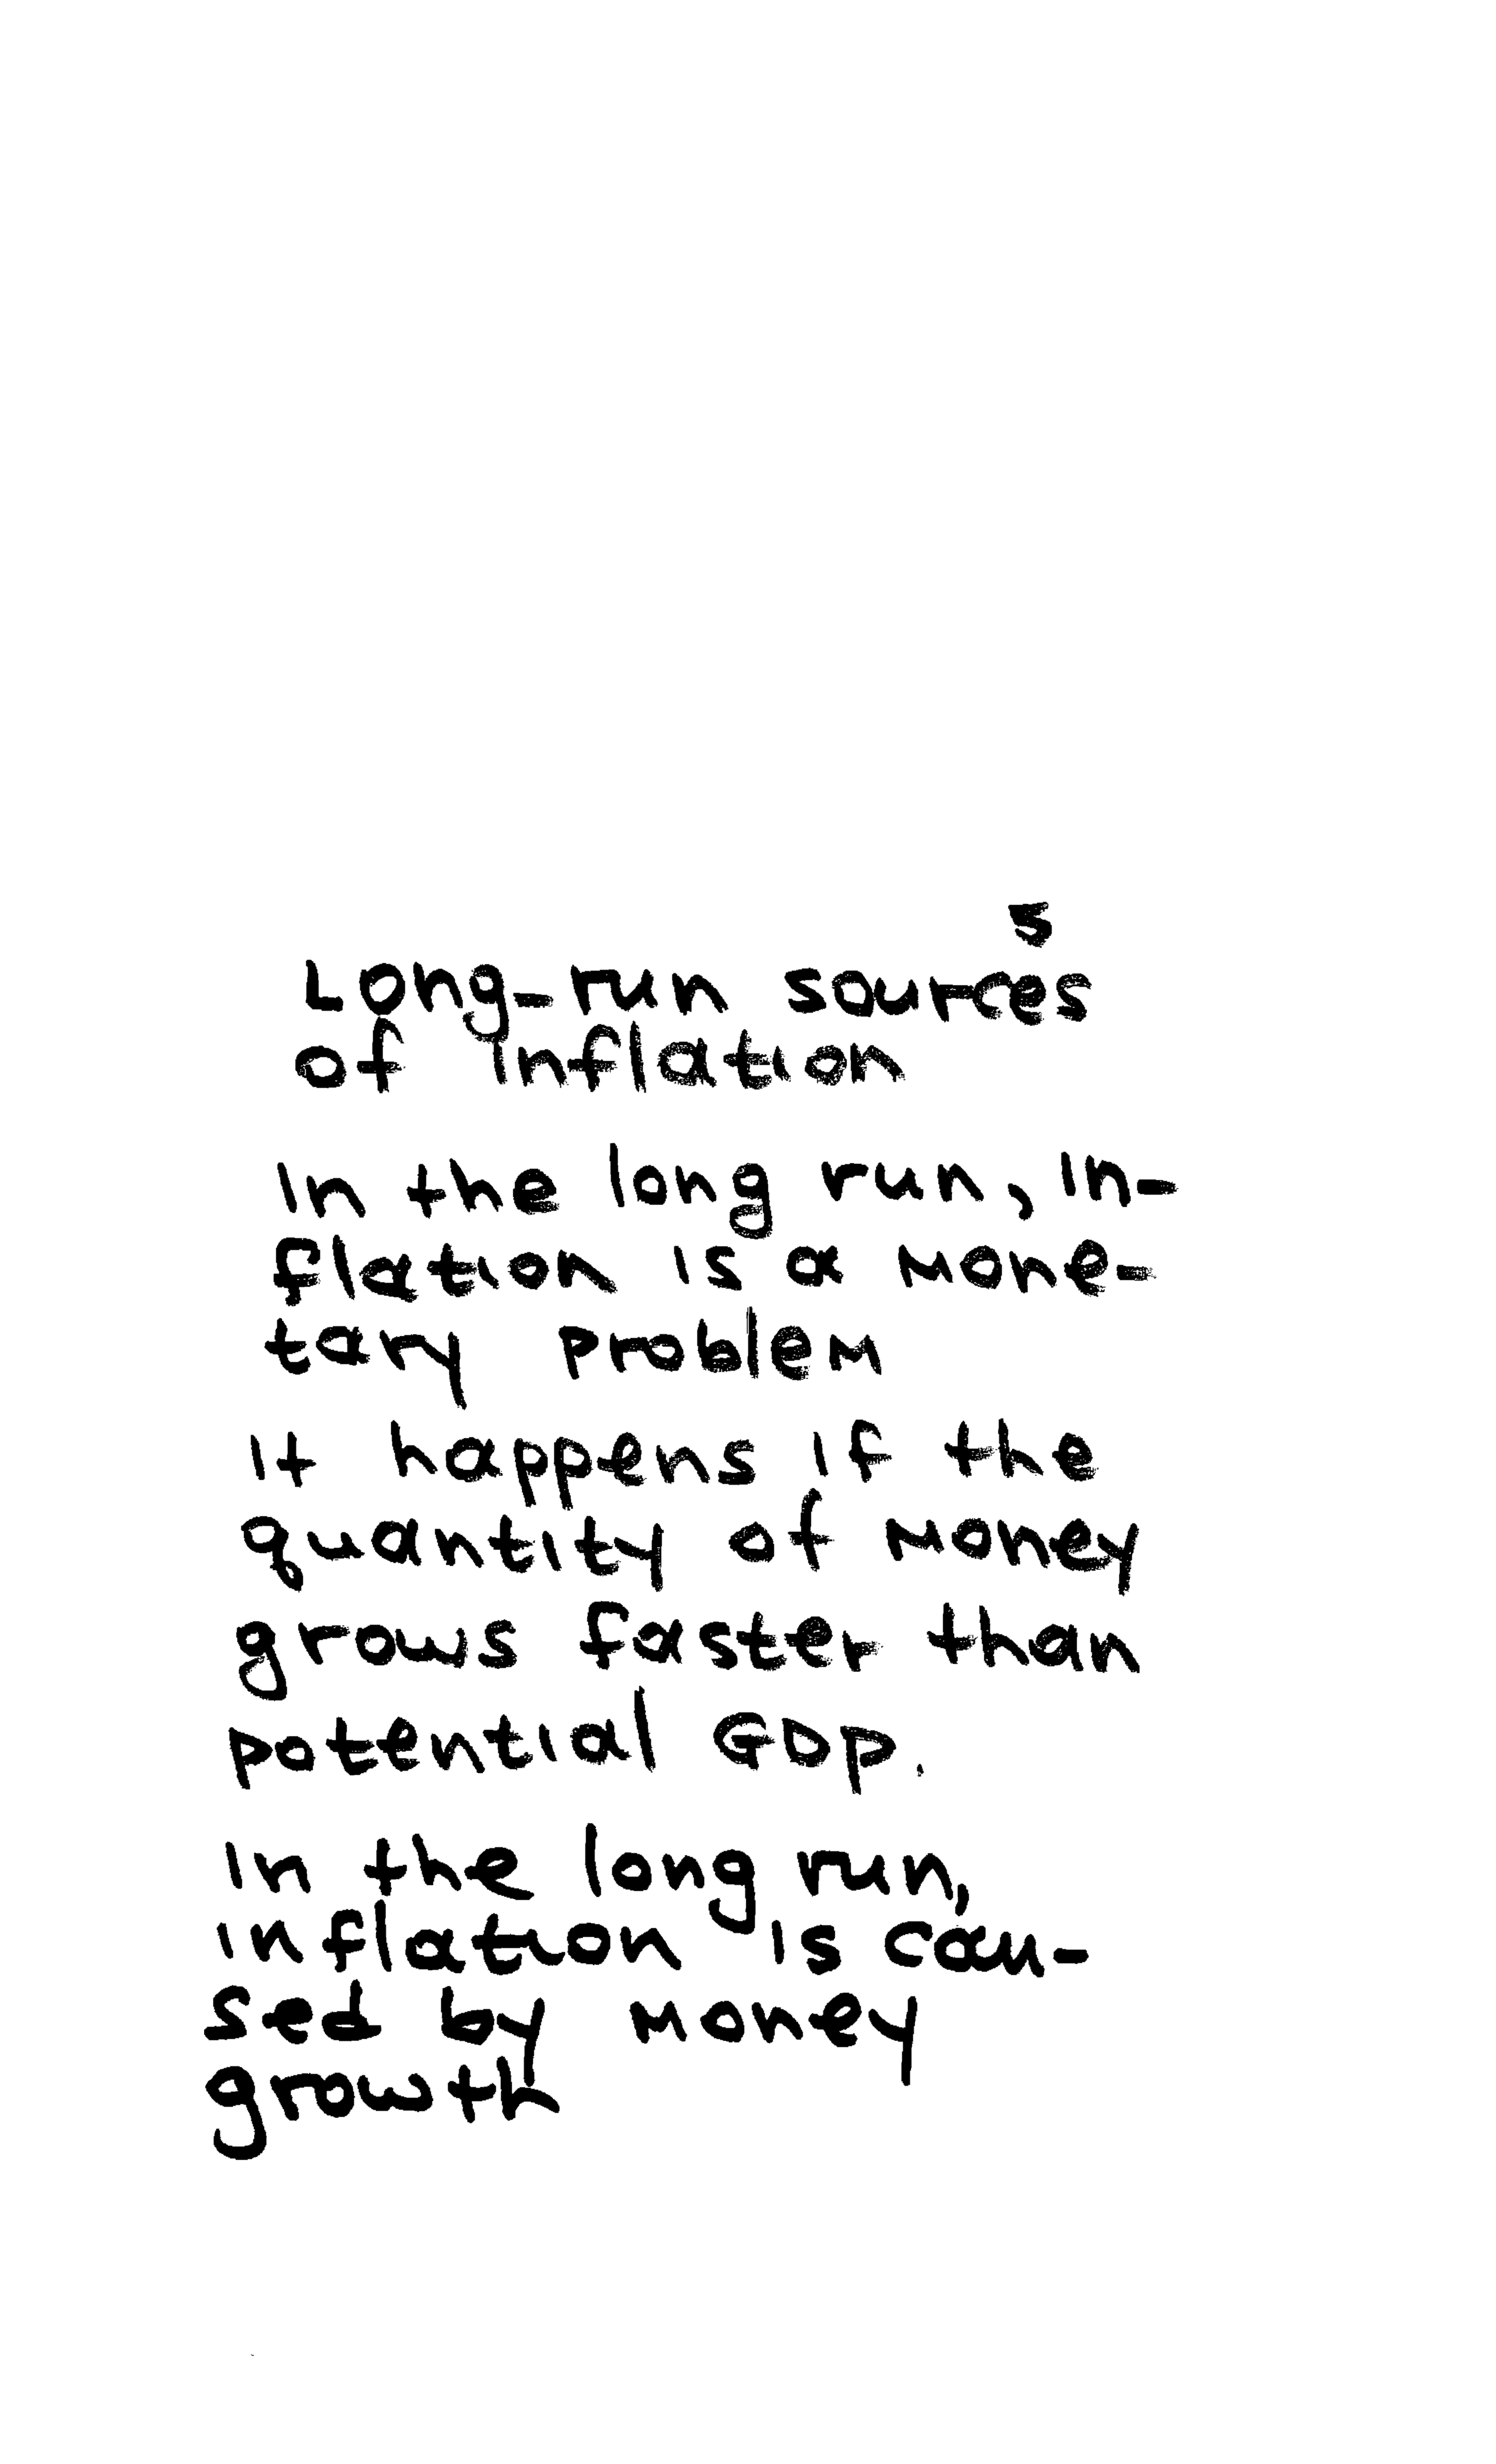 s
Long-run sources
of inflation
In the long run, in-
flation is a mone-
tary problem
It happens if the
quantity of money
grows faster than
potential GDP.
In the long run,
inflation is cau-
sed by money
growth